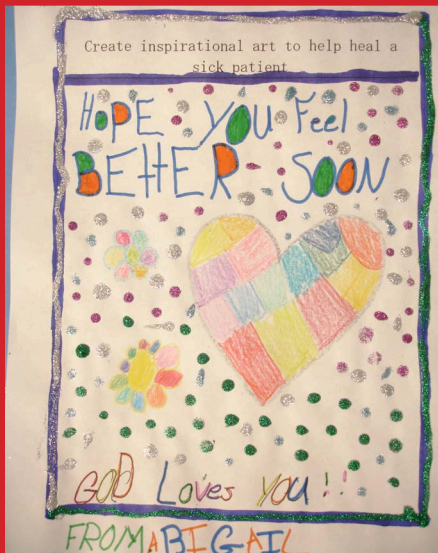 Create inspirational art to help heal a
sick patient
HOPE YOU Feel
BETTER SOON
GOD Loves YOU!!
FROM ABIGAIL